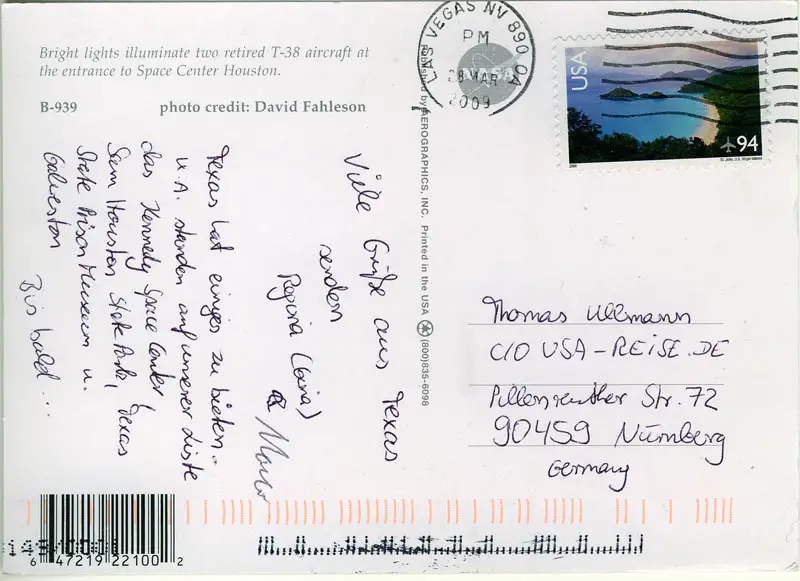 Bright lights illuminate two retired T-38 aircraft at
the entrance to Space Center Houston.
B-939 photo credit: David Fahleson
Viele Grüße aus Texas
senden
Regina (Gina)
& Marco
Texas hat einiges zu bieten..
U.A. standen auf unserer Liste
das Kennedy Space Center,
Sam Houston State Park, Texas
State Prison Museum u.
Galveston
Bis bald ...
Published by AEROGRAPHICS, INC. Printed in the USA (800)835-6098
NASA
LAS VEGAS NV 890
PM
28 MAR
2009
USA
94
St. John, U.S. Virgin Islands
Thomas Ullmann
C/O USA-REISE.DE
Pillenreuther Str. 72
90459 Nürnberg
Germany
6 47219 22100 2